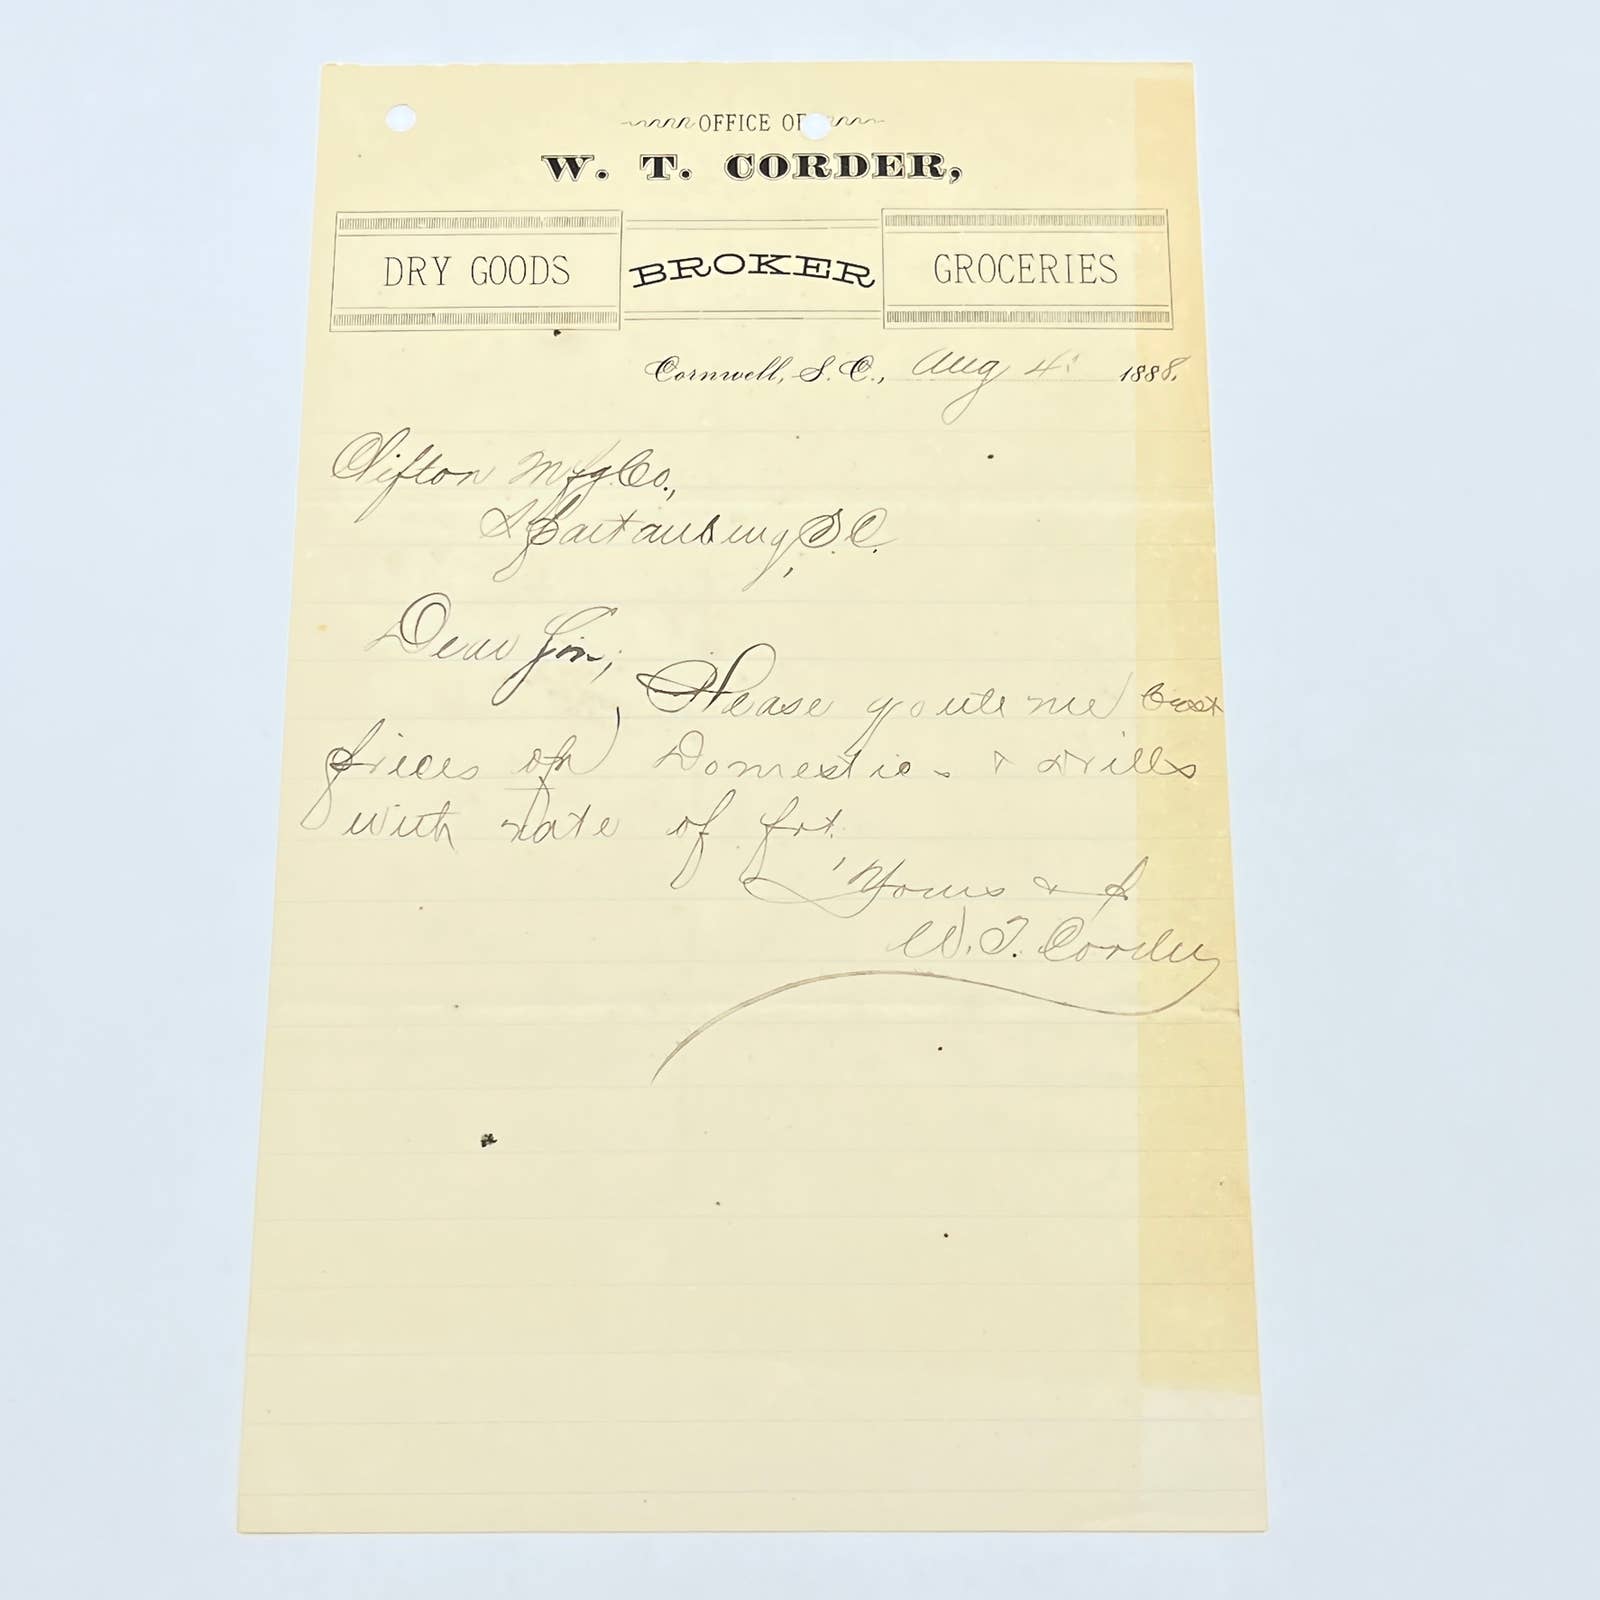 OFFICE OF
W. T. CORDER,
DRY GOODS BROKER GROCERIES
Cornwell, S. C., Aug 4. 1888.
Clifton Mfg. Co.,
Spartanburg, S. C.
Dear Sir;
Please quote me best
prices on Domestic & drills
with rate of frt.
Yours &
W. T. Corder